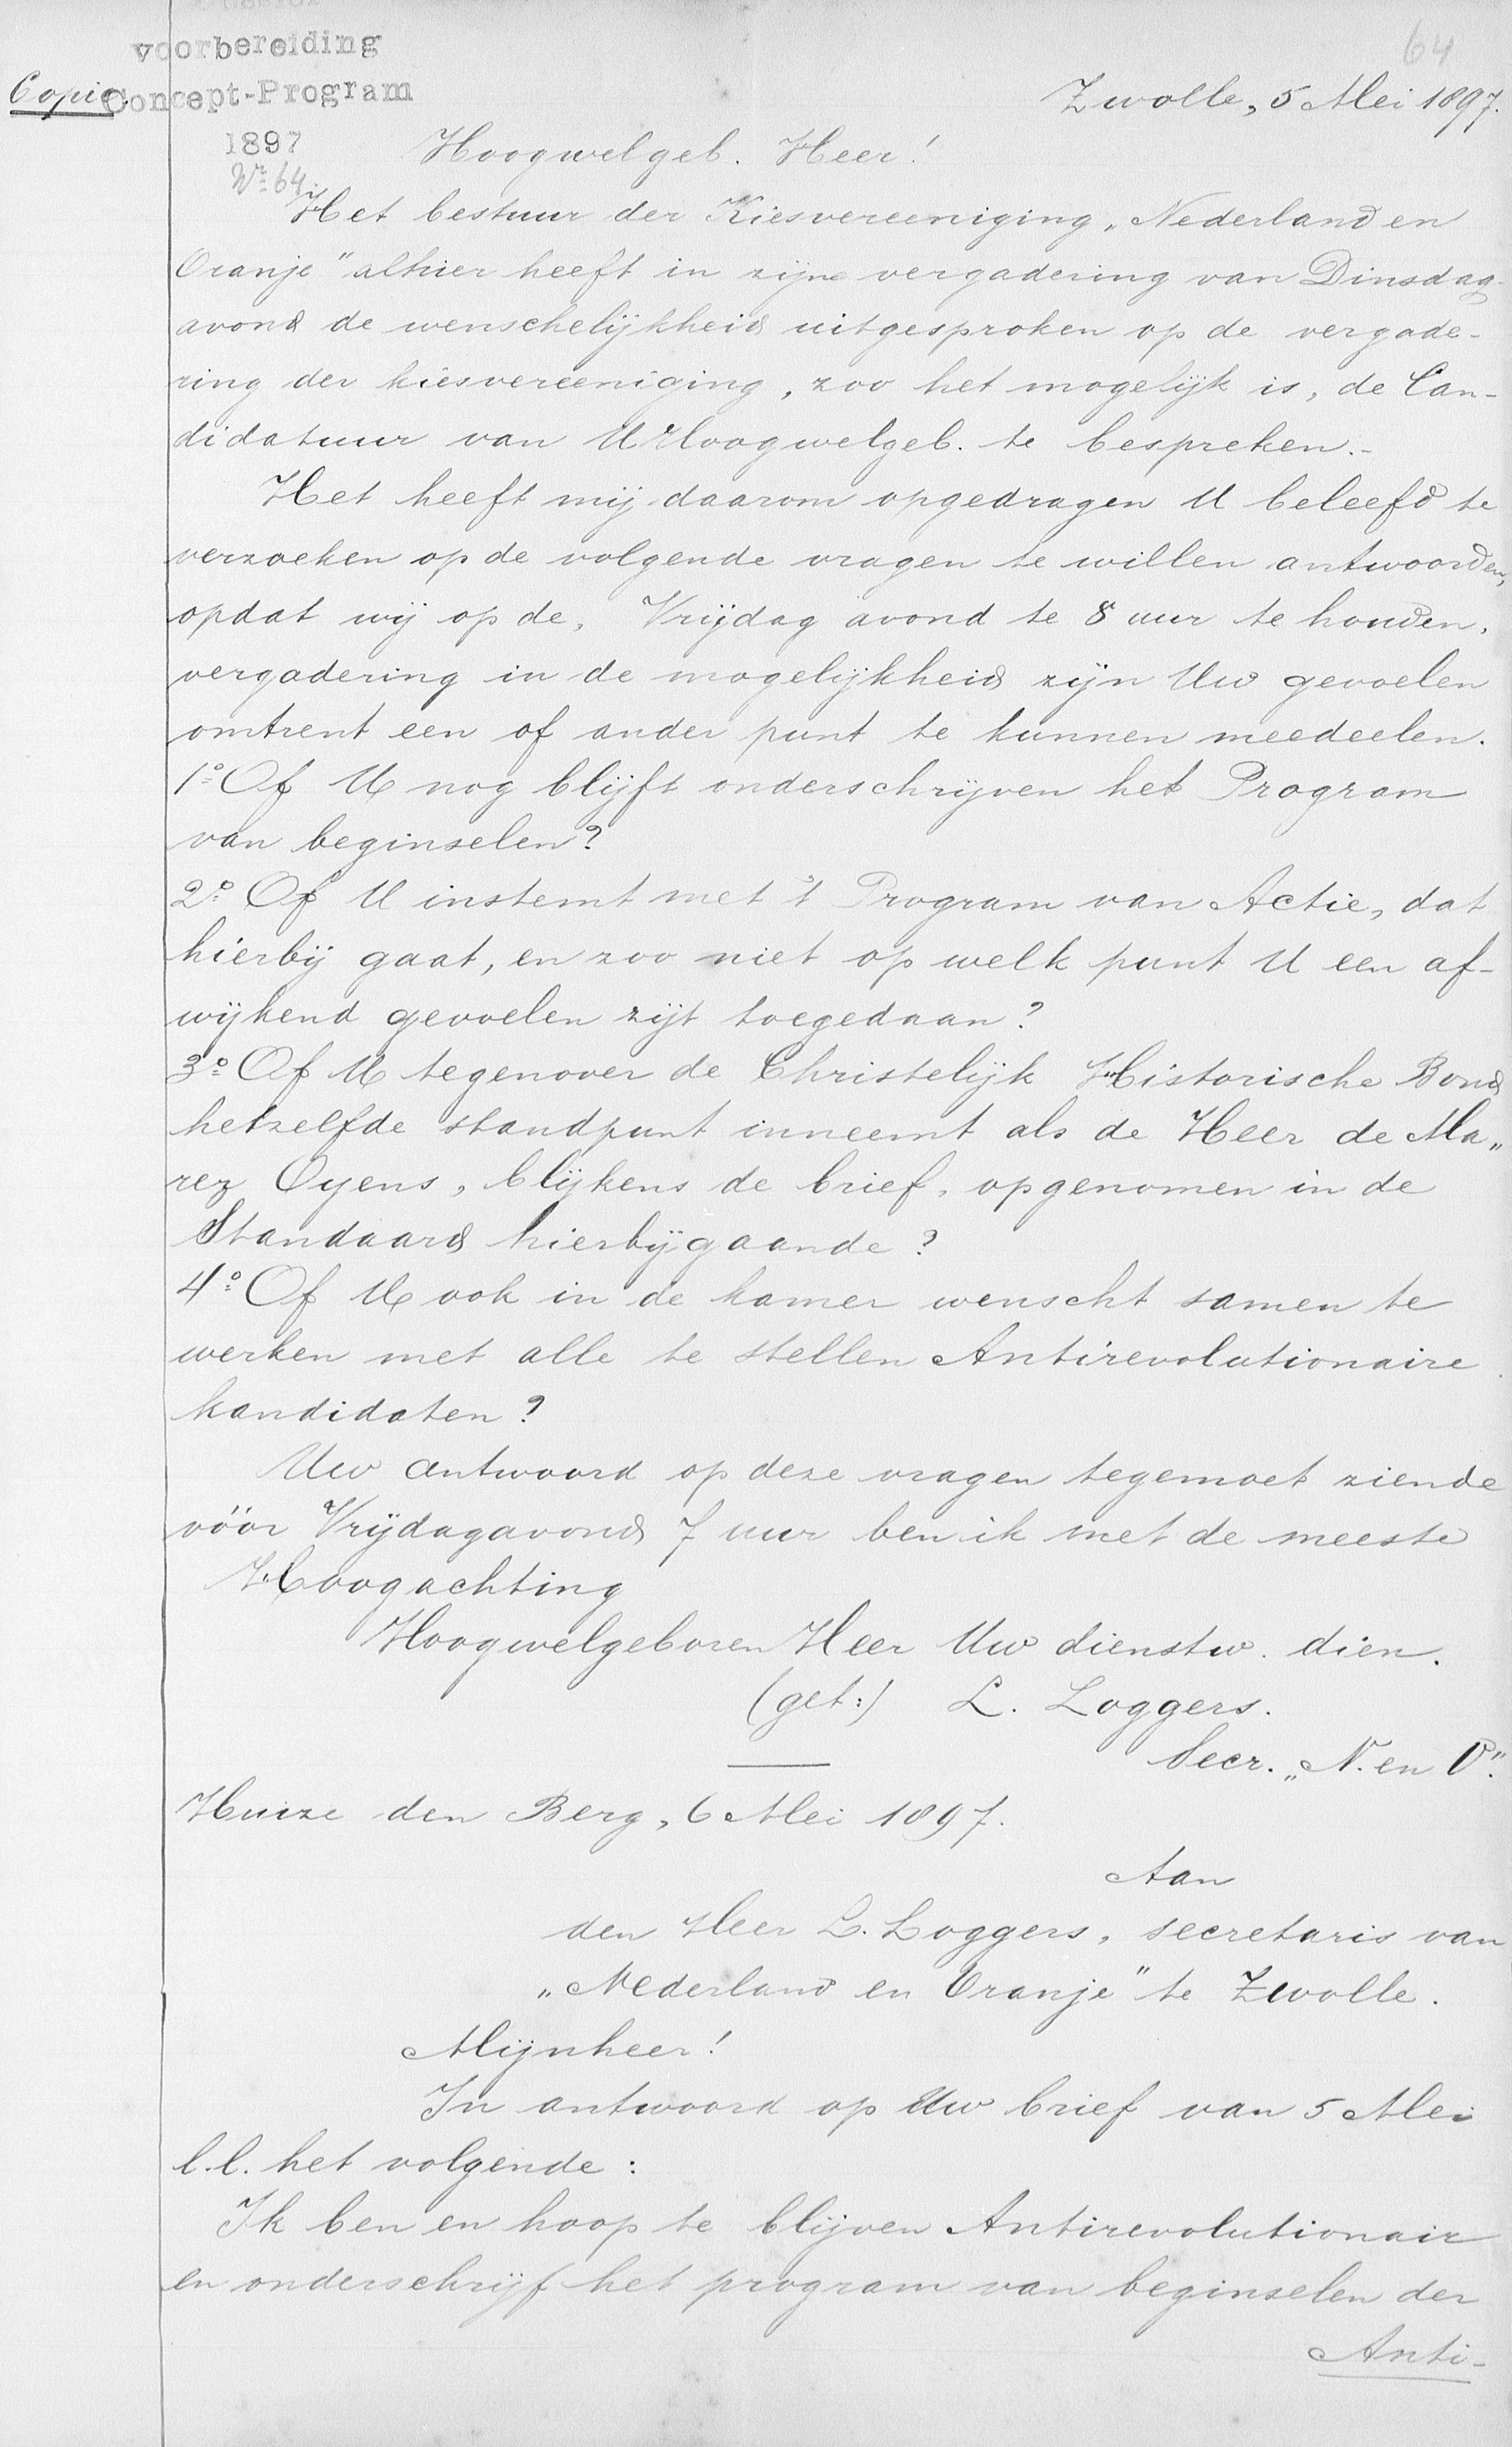 Dossier
voorbereiding
64
Copie.
Concept-Program
Zwolle, 5 Mei 1897.
1897
Hoogwelgeb. Heer!
Nr. 64
Het bestuur der Kiesvereeniging „Nederland en
Oranje" alhier heeft in zijne vergadering van Dinsdag-
avond de wenschelijkheid uitgesproken op de vergade-
ring der kiesvereeniging, zoo het mogelijk is, de Can-
didatuur van UHoogwelgeb. te bespreken.-
Het heeft mij daarom opgedragen U beleefd te
verzoeken op de volgende vragen te willen antwoorden,
opdat wij op de, Vrijdag avond te 8 uur te houden,
vergadering in de mogelijkheid zijn Uw gevoelen
omtrent een of ander punt te kunnen meedeelen.
1o Of U nog blijft onderschrijven het Program
van beginselen?
2o Of U instemt met 't Program van Actie, dat
hierbij gaat, en zoo niet op welk punt U een af-
wijkend gevoelen zijt toegedaan?
3o Of U tegenover de Christelijk Historische Bond
hetzelfde standpunt inneemt als de Heer de Ma„
rez Oyens, blijkens de brief, opgenomen in de
Standaard hierbijgaande?
4o Of U ook in de kamer wenscht samen te
werken met alle te stellen Antirevolutionaire
kandidaten?
Uw antwoord op deze vragen tegemoet ziende
vóór Vrijdagavond 7 uur ben ik met de meeste
Hoogachting
Hoogwelgeboren Heer Uw dienstw. dien.
(get:) L. Loggers.
Secr. „N. en O".
Huize den Berg, 6 Mei 1897.
Aan
den Heer L. Loggers, secretaris van
„Nederland en Oranje" te Zwolle.
Mijnheer!
In antwoord op Uw brief van 5 Mei
l.l. het volgende:
Ik ben en hoop te blijven Antirevolutionair
en onderschrijf het program van beginselen der
Anti-